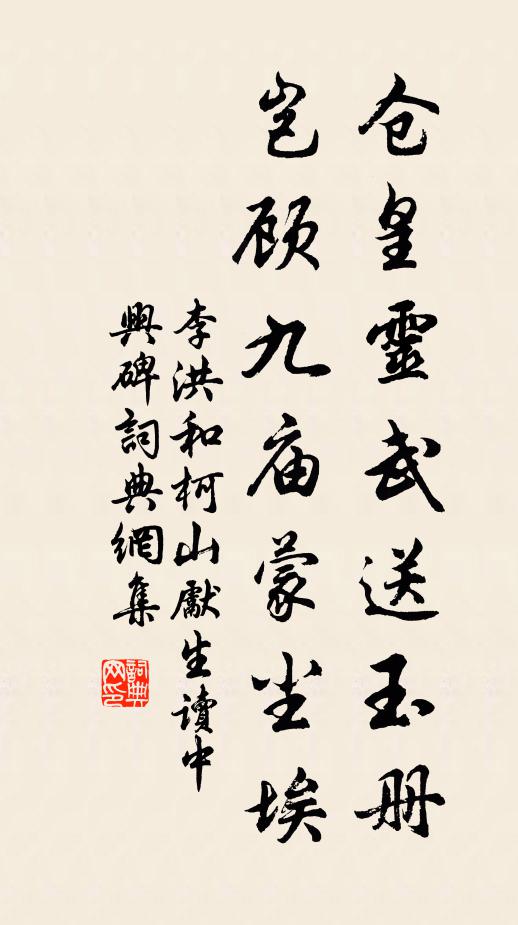 仓皇靈武送玉册
岂顾九庙蒙尘埃
李洪和柯山獻生讀中
興碑詞典網集
詞典
网印